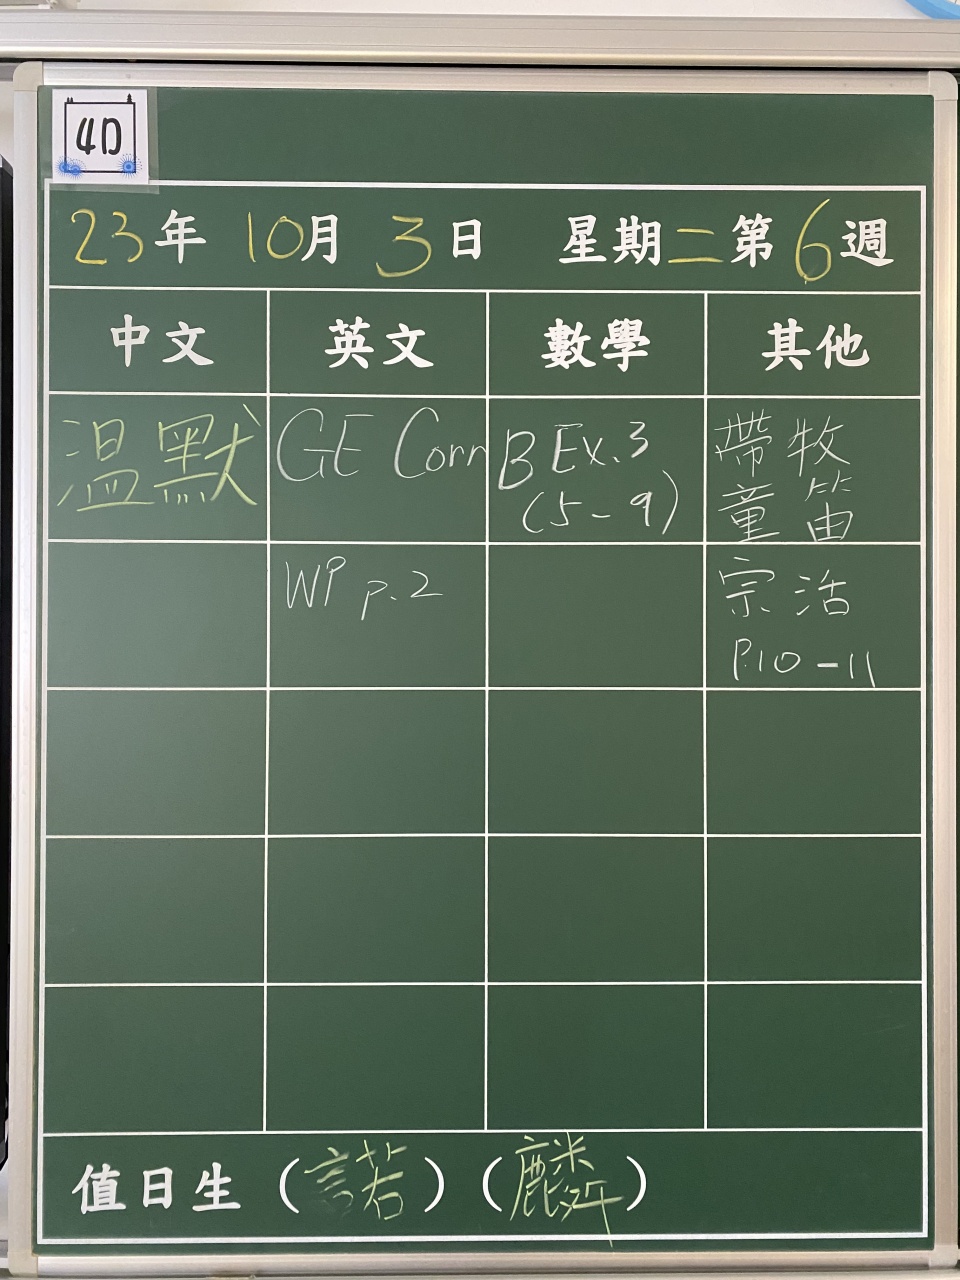 4D
23年 10月 3日 星期二第6週
中文 英文 數學 其他
溫默 GE Corr B Ex.3 帶牧
(5-9) 童笛
WP p.2 宗活
P.10-11
值日生 (諾) (麟)